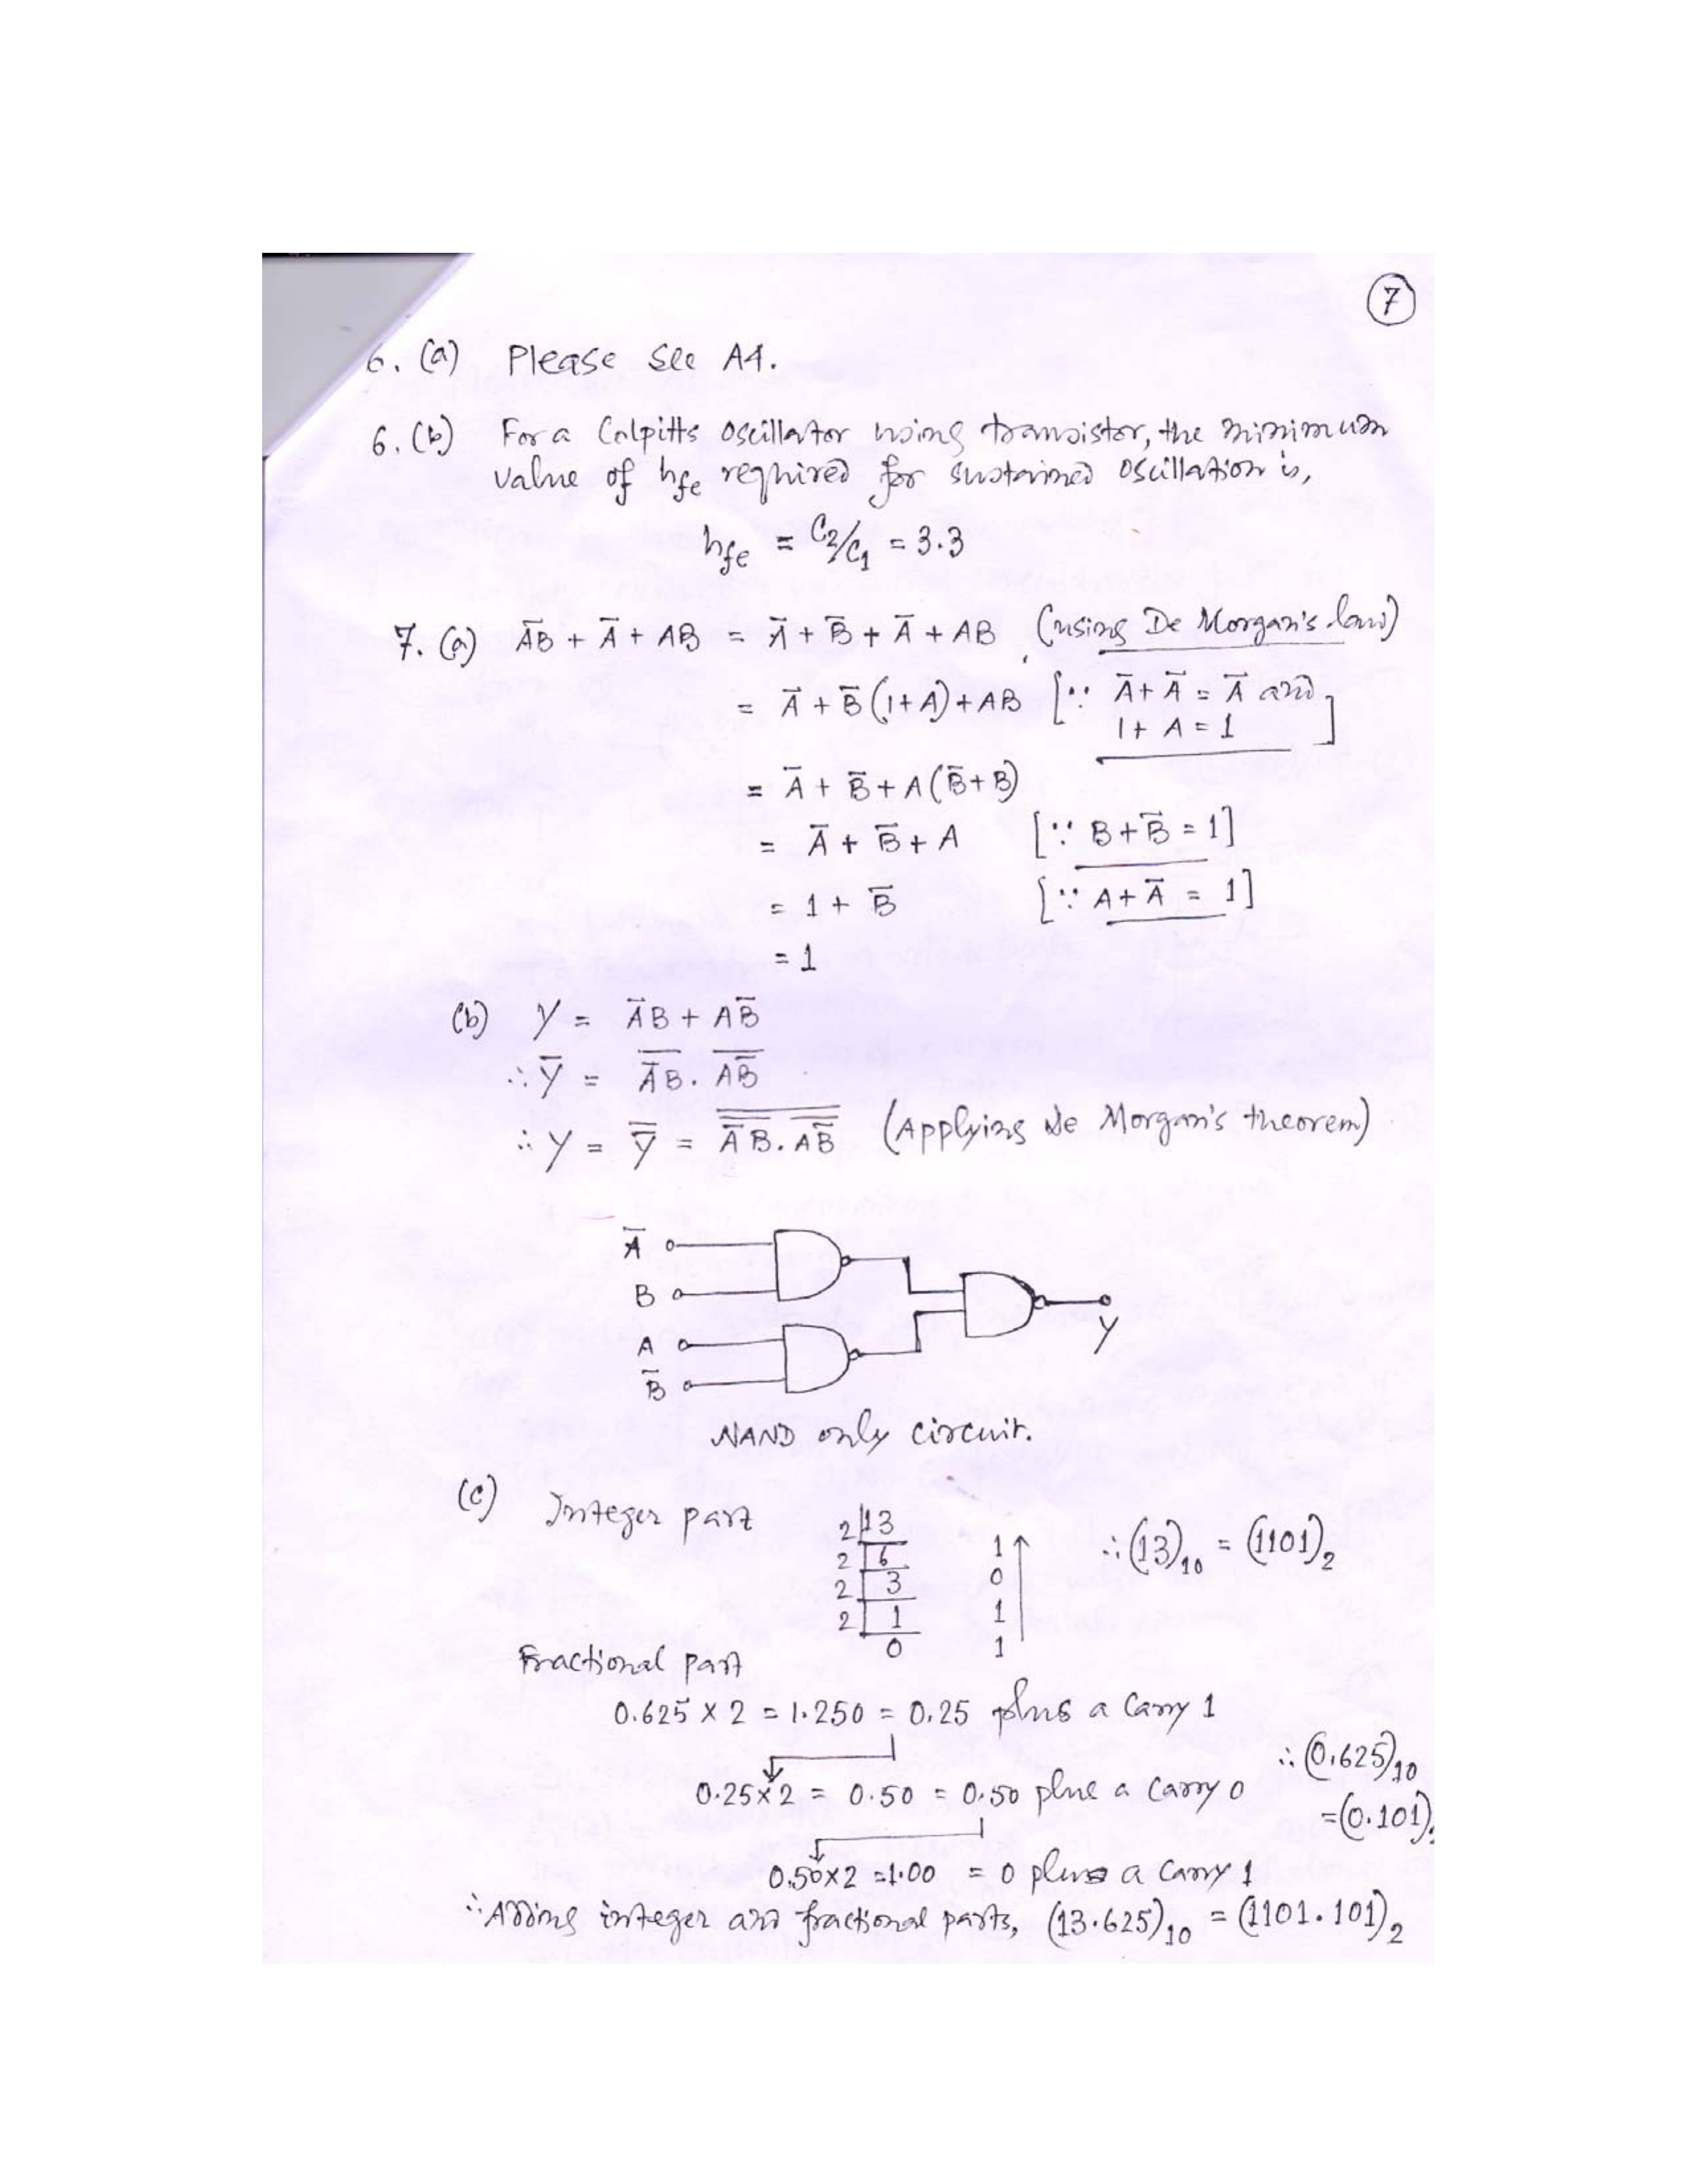 7
6. (a) Please See A4.
6. (b) For a Colpitts Oscillator using transistor, the minimum
value of hfe required for sustained oscillation is,
hfe = C₂/C₁ = 3.3
7. (a) A̅B̅ + A̅ + AB = A̅ + B̅ + A̅ + AB (using De Morgan's law)
= A̅ + B̅(1+A) + AB [∵ A̅ + A̅ = A̅ and
1 + A = 1]
= A̅ + B̅ + A(B̅+B)
= A̅ + B̅ + A [∵ B + B̅ = 1]
= 1 + B̅ [∵ A + A̅ = 1]
= 1
(b) Y = A̅B + AB̅
∴ Y̅ = \overline{A̅B} . \overline{AB̅}
∴ Y = \overline{Y̅} = \overline{\overline{A̅B} . \overline{AB̅}} (Applying De Morgan's theorem)
A̅
B
A
B̅
Y
NAND only circuit.
(c) Integer part
2 13
2 6 1
2 3 0
2 1 1
0 1
∴ (13)₁₀ = (1101)₂
Fractional part
0.625 × 2 = 1.250 = 0.25 plus a carry 1
0.25×2 = 0.50 = 0.50 plus a carry 0
∴ (0.625)₁₀
= (0.101)
0.50×2 = 1.00 = 0 plus a carry 1
∴ Adding integer and fractional parts, (13.625)₁₀ = (1101.101)₂